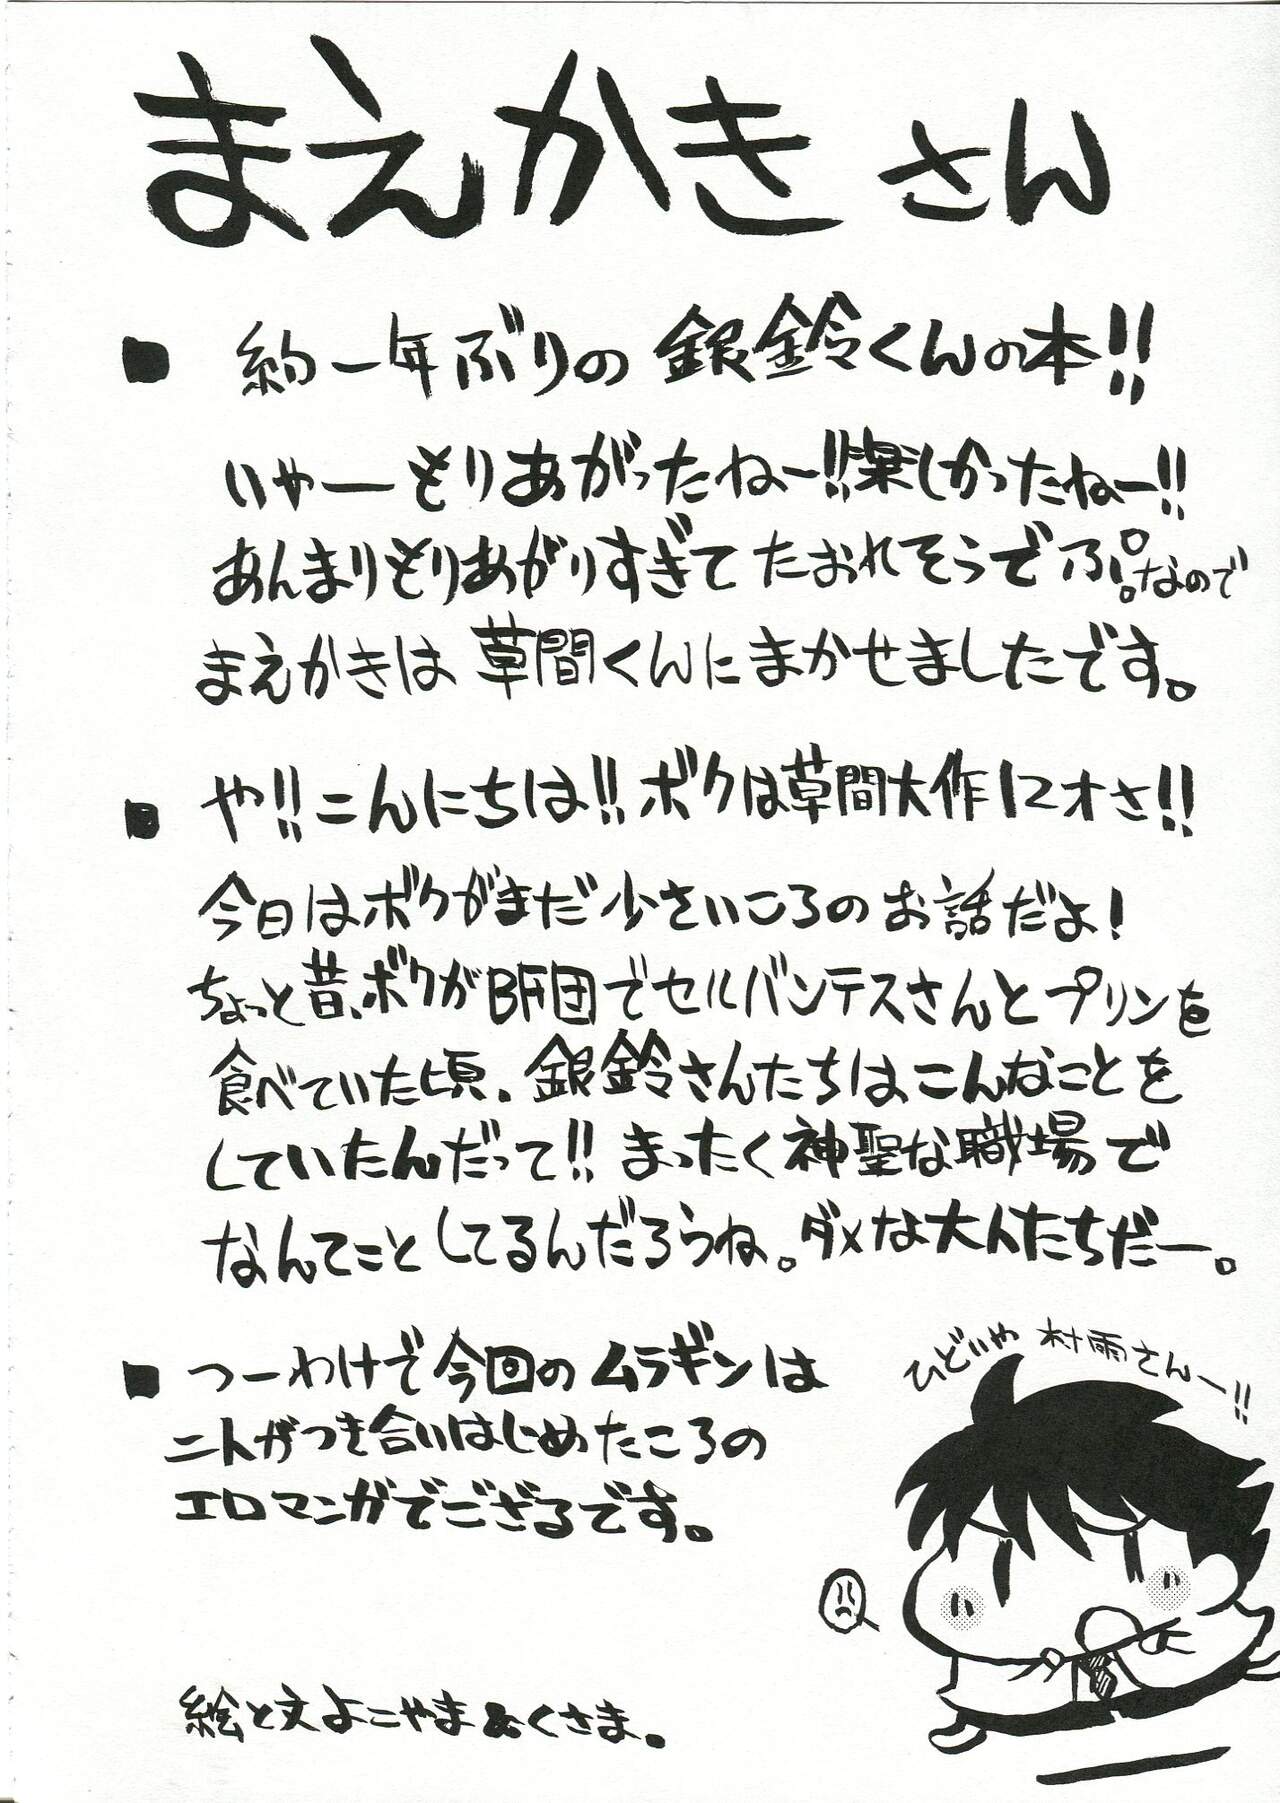 まえかきさん
■ 約一年ぶりの銀鈴くんの本!!
いやーもりあがったねー!!楽しかったねー!!
あんまりもりあがりすぎてたおれそうでぷ。なので
まえかきは草間くんにまかせましたです。
■ や!!こんにちは!!ボクは草間大作12才さ!!
今日はボクがまだ少さいころのお話だよ!
ちょっと昔、ボクがBF団でセルバンテスさんとプリンを
食べていた頃、銀鈴さんたちはこんなことを
していたんだって!!まったく神聖な職場で
なんてことしてるんだろうね。ダメな大人たちだー。
■ つーわけで今回のムラギンは
二人がつき合いはじめたころの
エロマンガでござるです。
ひどいや村雨さんー!!
絵と文よこやま&くさま。